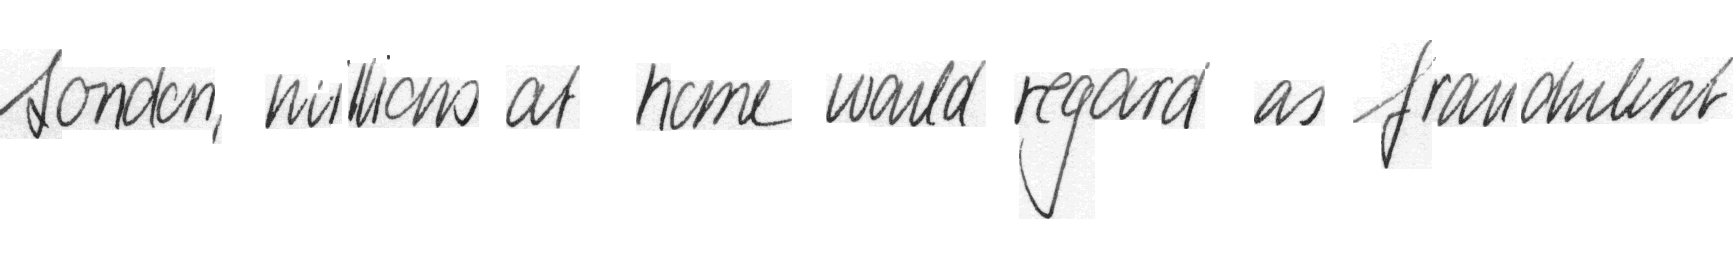 London, millions at home would regard as fraudulent